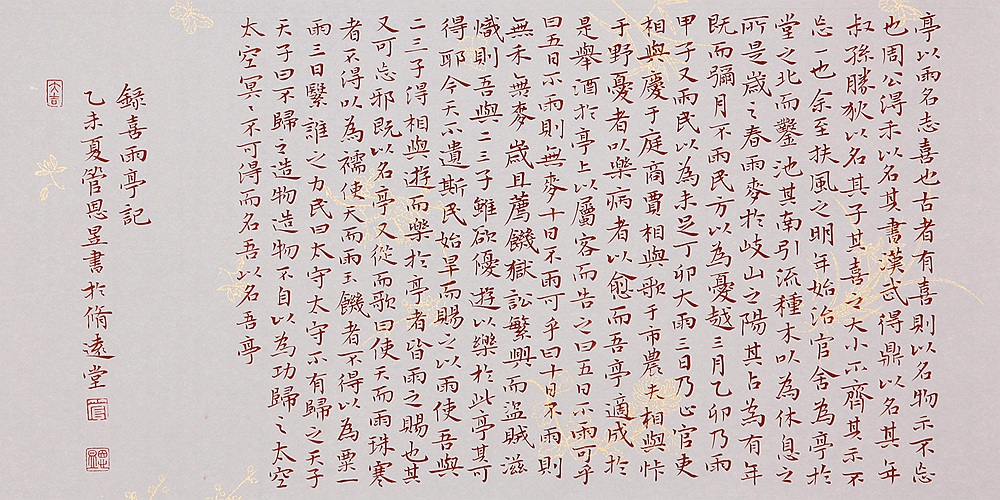 亭以雨名志喜也古者有喜則以名物示不忘
也周公得禾以名其書漢武得鼎以名其年
叔孫勝狄以名其子其喜之大小不齊其示不
忘一也余至扶風之明年始治官舍為亭於
堂之北而鑿池其南引流種木以為休息之
所是歲之春雨麥於岐山之陽其占為有年
既而彌月不雨民方以為憂越三月乙卯乃雨
甲子又雨民以為未足丁卯大雨三日乃止官吏
相與慶于庭商賈相與歌于市農夫相與忭
于野憂者以樂病者以愈而吾亭適成於
是舉酒於亭上以屬客而告之曰五日不雨可乎
曰五日不雨則無麥十日不雨可乎曰十日不雨則
無禾無麥歲且薦饑獄訟繁興而盜賊滋
熾則吾與二三子雖欲優遊以樂於此亭其可
得耶今天不遺斯民始旱而賜之以雨使吾與
二三子得相與遊而樂於亭者皆雨之賜也其
又可忘邪既以名亭又從而歌曰使天而雨珠寒
者不得以為襦使天而雨玉饑者不得以為粟一
雨三日繄誰之力民曰太守太守不有歸之天子
天子曰不歸之造物造物不自以為功歸之太空
太空冥〻不可得而名吾以名吾亭
錄喜雨亭記
乙未夏管恩昱書於脩遠堂
大吉